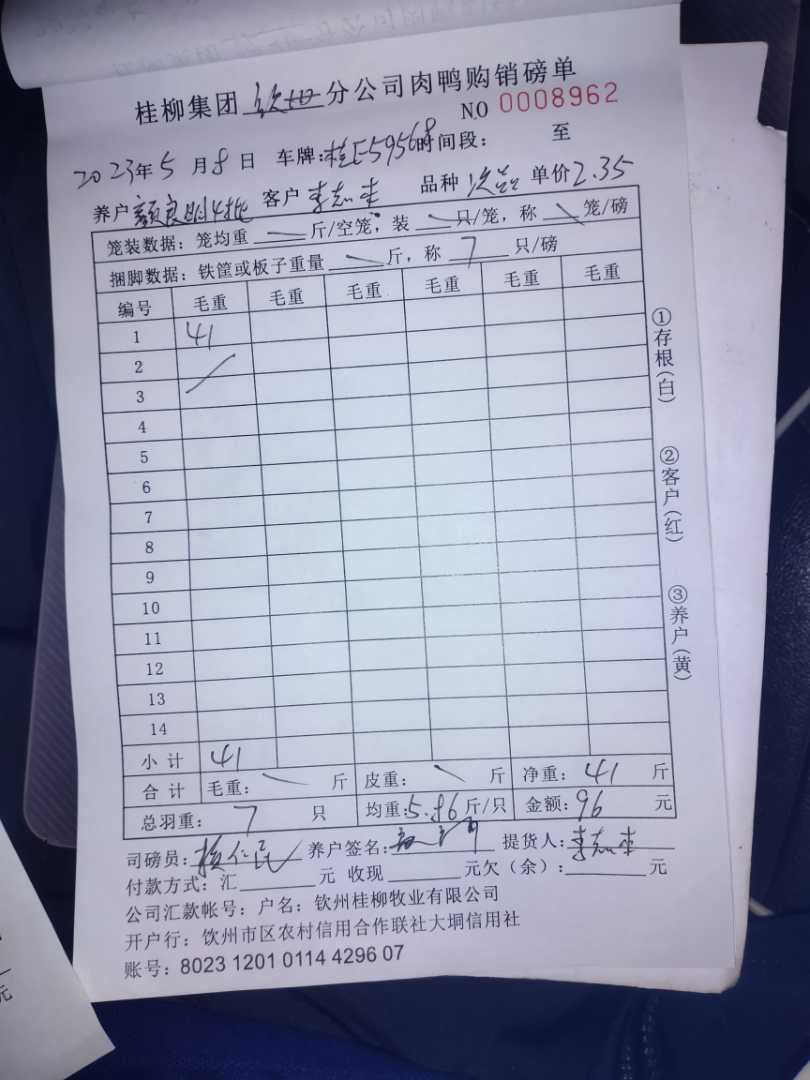 桂柳集团 钦州 分公司肉鸭购销磅单
NO 0008962
2023年5月8日 车牌:桂E59568 时间段: 至
养户 颜良明 客户 李志来 品种 次品 单价 2.35
笼装数据：笼均重 斤/空笼，装 只/笼，称 笼/磅
捆脚数据：铁筐或板子重量 斤，称 7 只/磅
编号 毛重 毛重 毛重 毛重 毛重 毛重
1 41
2
3
4
5
6
7
8
9
10
11
12
13
14
小计 41
合计 毛重: 斤 皮重: 斤 净重: 41 斤
总羽重: 7 只 均重:5.86斤/只 金额:96 元
司磅员: 养户签名: 提货人:李志来
付款方式：汇 元 收现 元欠（余）: 元
公司汇款帐号：户名：钦州桂柳牧业有限公司
开户行：钦州市区农村信用合作联社大垌信用社
账号：8023 1201 0114 4296 07
①存根(白)
②客户(红)
③养户(黄)
元